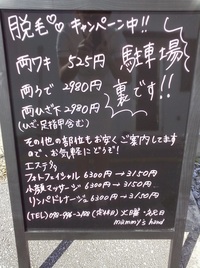 脱毛♡♡ キャンペーン中!!
両ワキ 525円
駐車場
両うで 2980円
裏です!!
両ひざ下 2980円
(ひざ・足指甲含む)
その他の部位もお安くご案内してます
ので、お気軽にどうぞ!
エステも
フォトフェイシャル 6300円→3150円
小顔マッサージ 6300円→3150円
リンパドレナージ 6300円→3150円
(定休日) 火曜日
mammy's hand